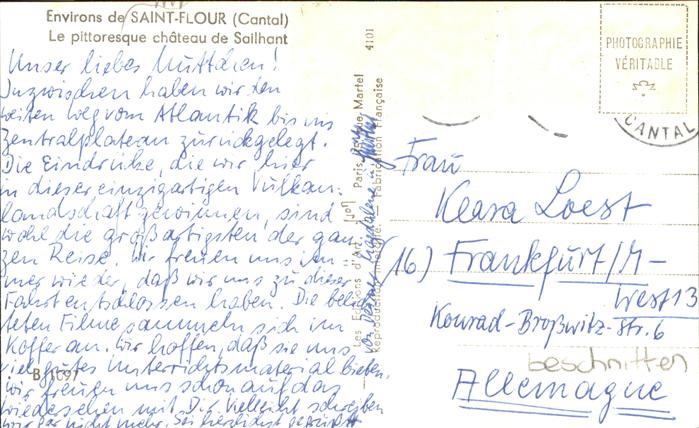 Environs de SAINT-FLOUR (Cantal)
Le pittoresque château de Sailhant
Unser liebes Muttchen!
Inzwischen haben wir den
weiten Weg vom Atlantik bis ins
Zentralplateau zurückgelegt.
Die Eindrücke, die wir hier
in dieser einzigartigen Vulkan-
landschaft gewinnen, sind
wohl die großartigsten der gan-
zen Reise. Wir freuen uns im-
mer wieder, daß wir uns zu dieser
Fahrt entschlossen haben. Die belich-
teten Filme sammeln sich im
Koffer an. Wir hoffen, daß sie uns
viel gutes Unterrichtsmaterial bieten.
Wir freuen uns schon auf das
Wiedersehen mit Dir. Vielleicht schreiben
wir Dir nicht mehr. Sei herzlichst gegrüßt
von Magdalene
B 1091
4101
Les Editions d'Art Paris Rue Martel
Fabrication Française
PHOTOGRAPHIE
VÉRITABLE
CANTAL
Frau
Klara Loest
(16) Frankfurt/M-
West 13
Konrad-Broßwitz-Str. 6
beschnitten
Allemagne